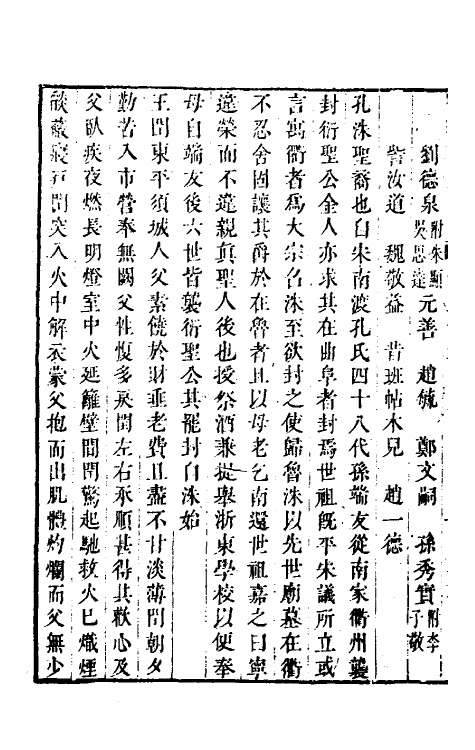 劉德泉附朱顯吳思達 元善 趙毓 鄭文嗣 孫秀實附李子敬
訾汝道 魏敬益 昔班帖木兒 趙一德
孔洙聖裔也自宋南渡孔氏四十八代孫端友從南家衢州襲
封衍聖公金人亦求其在曲阜者封焉世祖旣平宋議所立或
言寓衢者爲大宗召洙至欲封之使歸魯洙以先世廟墓在衢
不忍舍固讓其爵於在魯者且以母老乞南還世祖嘉之曰寧
違榮而不違親眞聖人後也授祭酒兼提舉浙東學校以便奉
母自端友後六世皆襲衍聖公其罷封自洙始
王閏東平須城人父素饒於財垂老費且盡不甘淡薄閏朝夕
勤苦入市營奉無闕父性愎多戾閏左右承順甚得其歡心及
父臥疾夜燃長明燈室中火延籬壁間閏驚起馳救火已熾煙
燄蔽寢戸閏突入火中解衣蒙父抱而出肌體灼爛而父無少